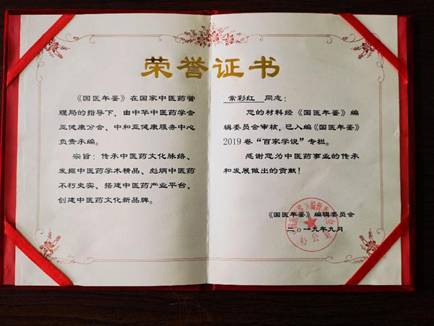 荣誉证书
《国医年鉴》在国家中医药管
理局的指导下，由中华中医药学会
亚健康分会、中和亚健康服务中心
负责承编。
宗旨：传承中医药文化脉络、
发掘中医药学术精品、彪炳中医药
不朽史实、搭建中医药产业平台、
创建中医药文化新品牌。
常彩红 同志：
您的材料经《国医年鉴》编
辑委员会审核，已入编《国医年鉴》
2019卷“百家学说”专栏。
感谢您为中医药事业的传承
和发展做出的贡献！
《国医年鉴》编辑委员会
二〇一九年九月